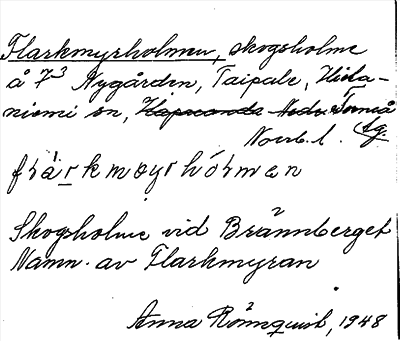 Flarkmyrholmen, skogsholme
å 7³ Nygården, Taipale, Hieta-
niemi sn, Haparanda Nedr. Torneå
Norrb. l. tg.
flárkmøyrhólmen
Skogsholme vid Brännberget
Namn. av Flarkmyran
Anna Rönnquist, 1948